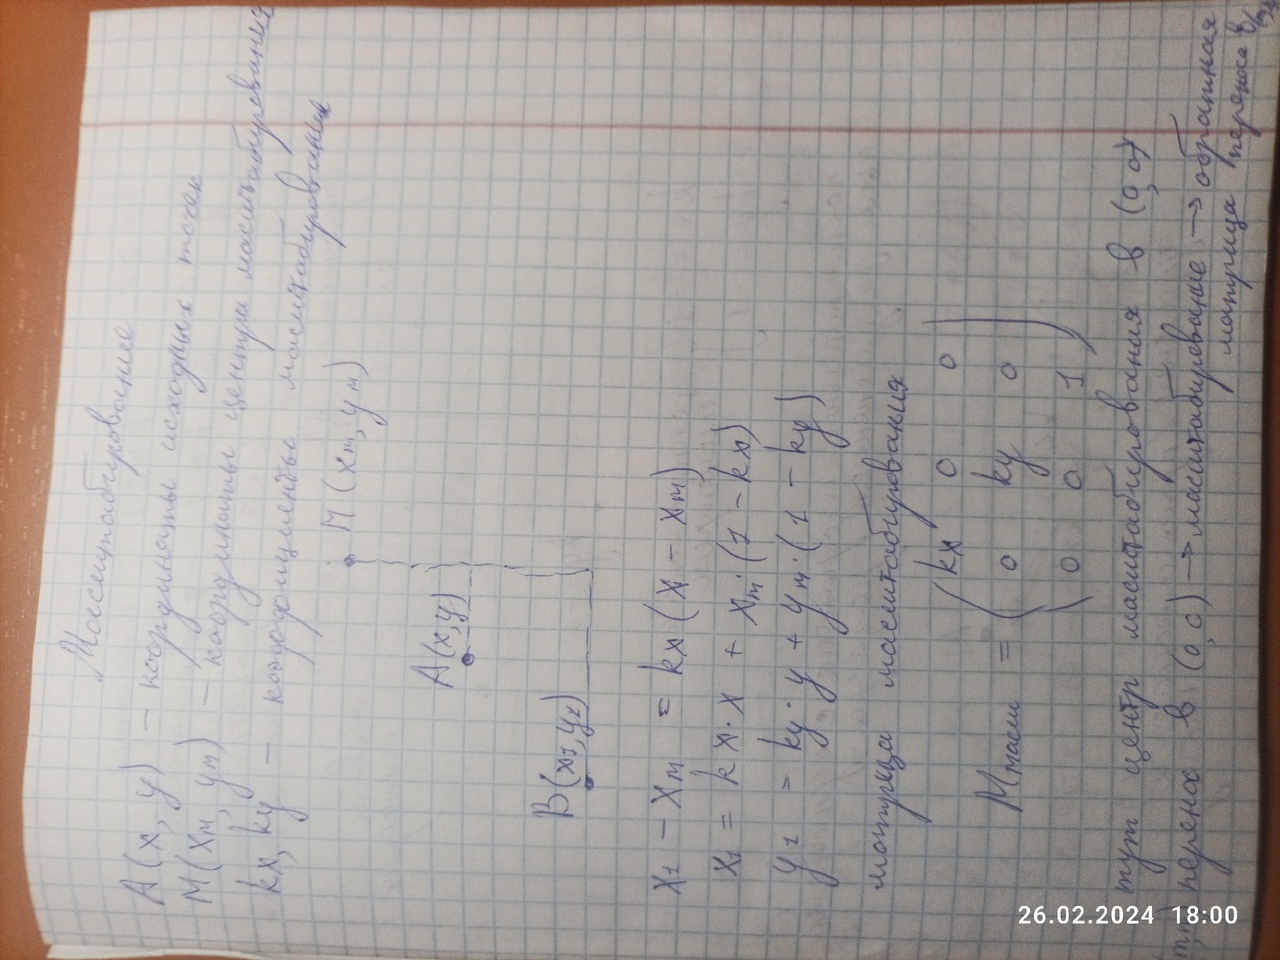 Масштабирование
A(x, y) — координаты исходных точек
M(xm, ym) — координаты центра масштабирования
kx, ky — коэффициенты масштабирования
M(xm, ym)
A(x, y)
B(x1, y1)
x1 - xm = kx(x - xm)
x1 = kx·x + xm·(1 - kx)
y1 = ky·y + ym·(1 - ky)
матрица масштабирования
Ммасш = (kx 0 0
0 ky 0
0 0 1)
тут центр масштабирования в (0,0)
перенос в (0,0) → масштабирование → обратная
матрица переноса в
26.02.2024 18:00